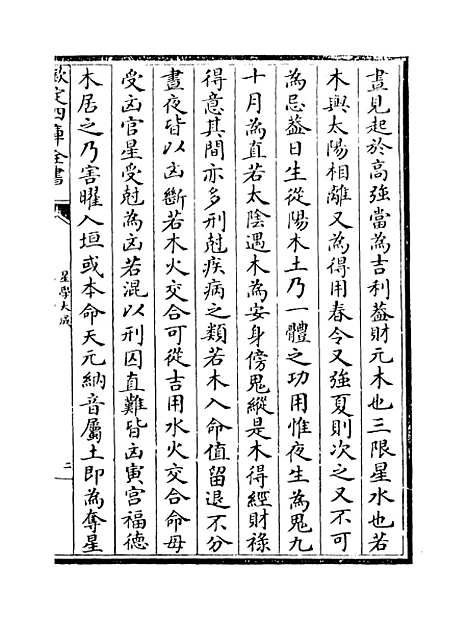 晝見起於高強當為吉利葢財元木也三限星水也若
木與太陽相離又為得用春令又強夏則次之又不可
為忌葢日生從陽木土乃一體之功用惟夜生為鬼九
十月為直若太陰遇木為安身傍鬼縱是木得經財祿
得意其間亦多刑尅疾病之類若木入命值留退不分
晝夜皆以凶斷若木火交合可從吉用水火交合命母
受凶官星受尅為凶若混以刑囚直難皆凶寅宮福德
木居之乃害曜入垣或本命天元納音屬土即為奪星
欽定四庫全書
星學大成
二